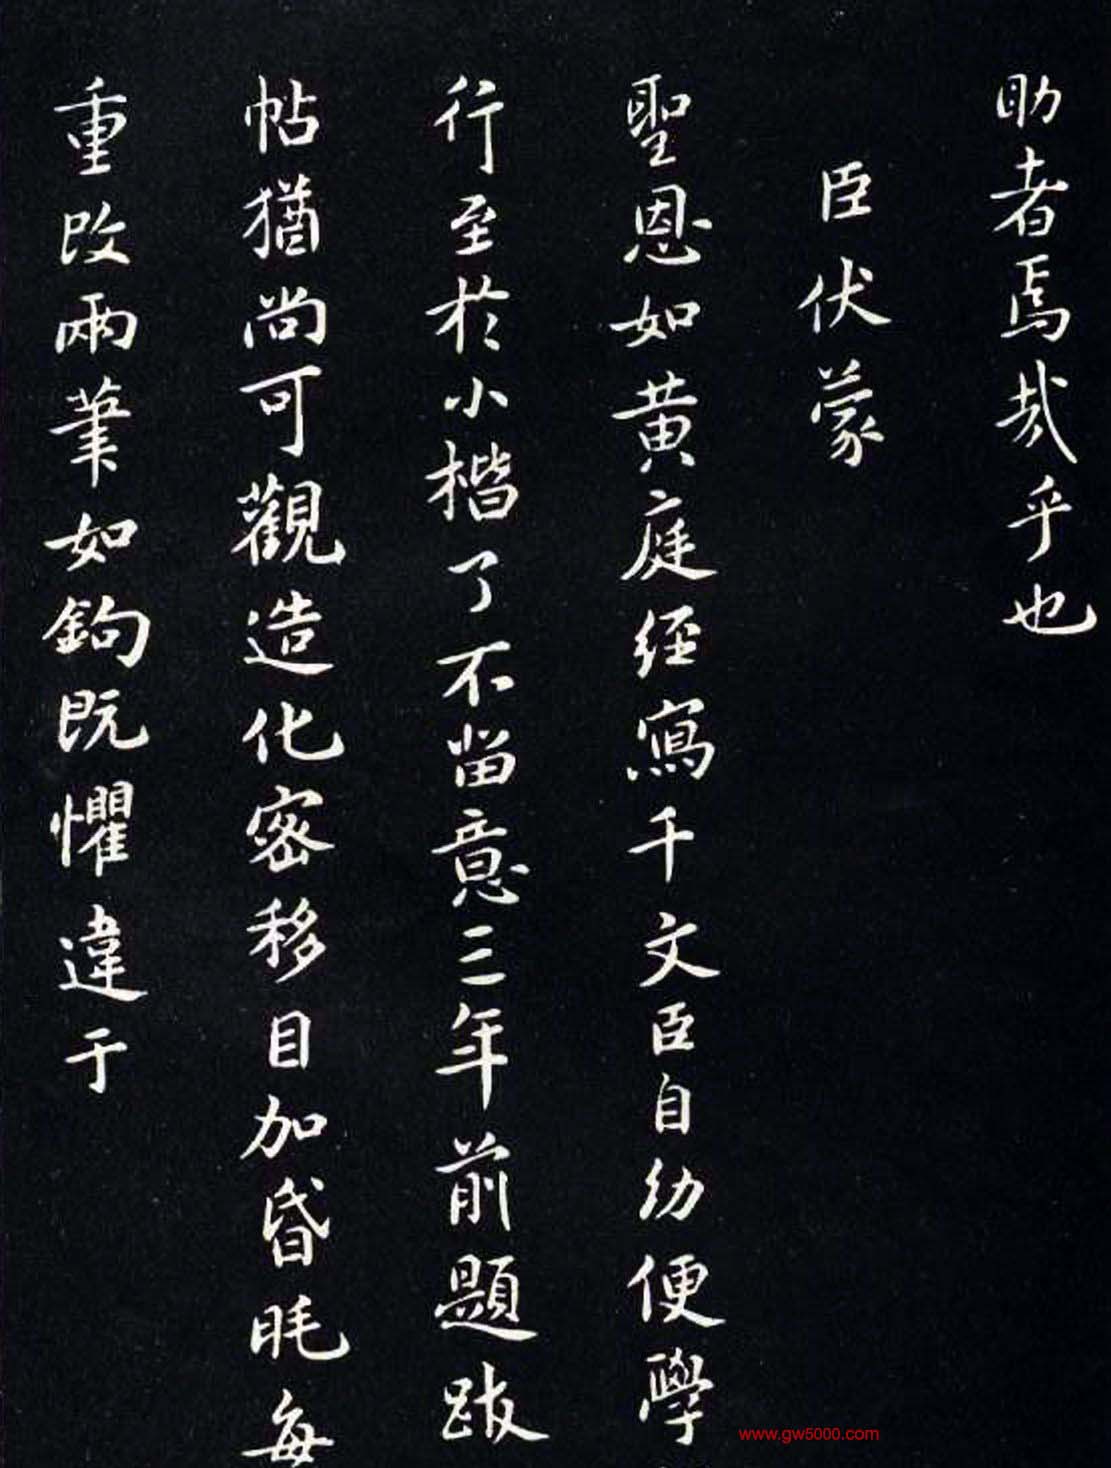 助者焉哉乎也
臣伏蒙
聖恩如黄庭经寫千文臣自幼便學
行至於小楷了不留意三年前題跋
帖猶尚可觀造化密移目加昏眊每
重改兩筆如鉤既懼違于
www.gw5000.com